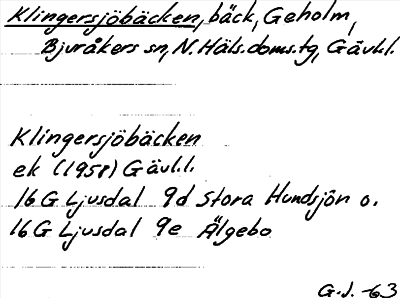 Klingersjöbäcken, bäck, Geholm,
Bjuråkers sn, N. Häls. doms. tg, Gävl.l.
Klingersjöbäcken
ek (1958) Gävl.l.
16 G Ljusdal 9d Stora Hundsjön o.
16 G Ljusdal 9e Älgebo
G.J. -63